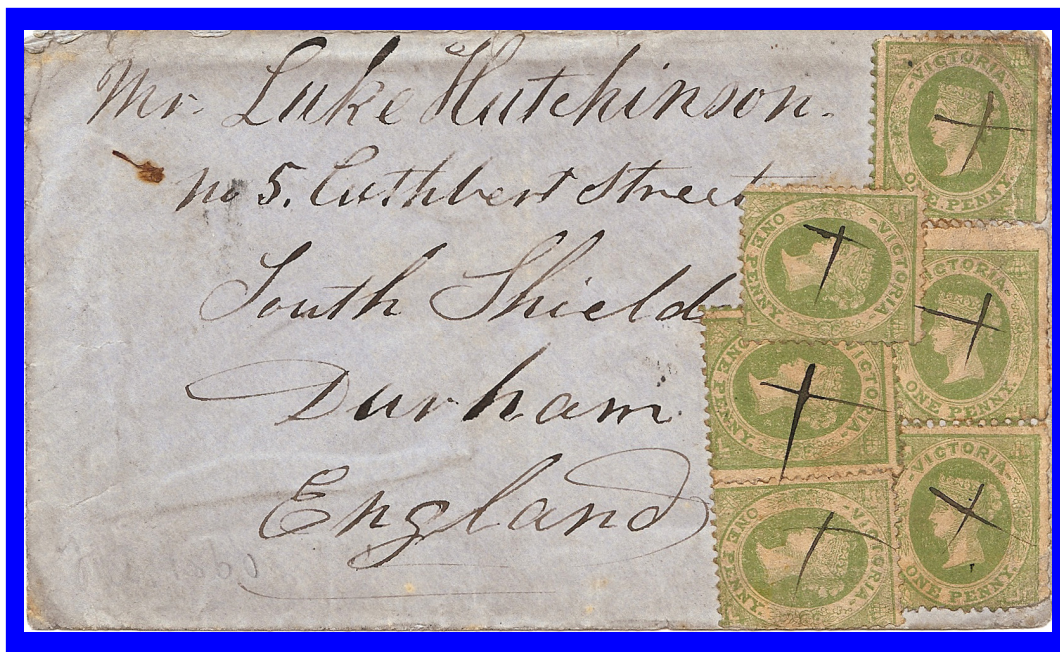 Mr. Luke Hutchinson.
no 5. Cuthbert Street
South Shield
Durham
England
VICTORIA
ONE PENNY
VICTORIA
ONE PENNY
VICTORIA
ONE PENNY
VICTORIA
ONE PENNY
VICTORIA
ONE PENNY
VICTORIA
ONE PENNY